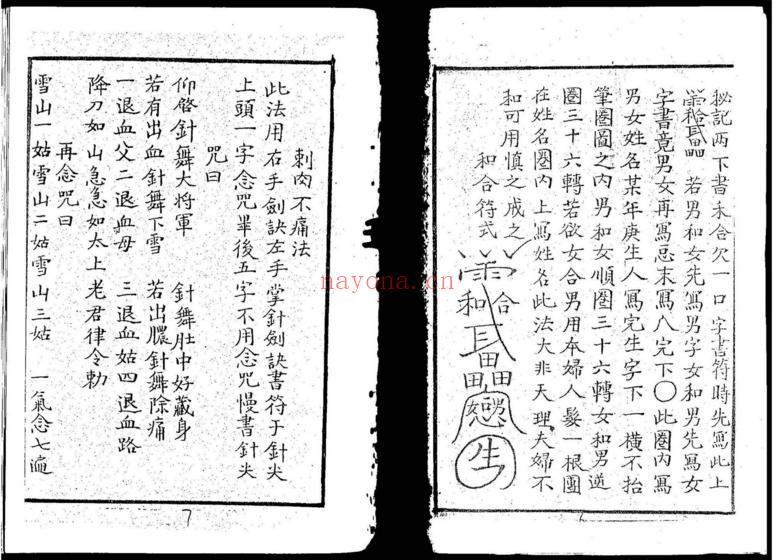 秘記兩下書禾合欠一口字書符時先寫此上
若男和女先寫男字女和男先寫女
字書竟男女再寫忌末寫八完下〇此圈內寫
男女姓名某年庚生人寫完生字下一橫不抬
筆圈圖之內男和女順圈三十六轉女和男逆
圈三十六轉若欲女合男用本婦人髮一根團
在姓名圈內上寫姓名此法大非天理夫婦不
和可用慎之戒之
和合符式
合
和
男
戀
生
刺肉不痛法
此法用右手劍訣左手掌針劍訣書符于針尖
上頭一字念咒畢後五字不用念咒慢書針尖
咒曰
仰啓針舞大將軍 針舞肚中好藏身
若有出血針舞下雪 若出膿針舞除痛
一退血父二退血母 三退血姑四退血路
降刀如山急急如太上老君律令勅
再念咒曰
雪山一姑雪山二姑雪山三姑 一氣念七遍
7
nayona.cn